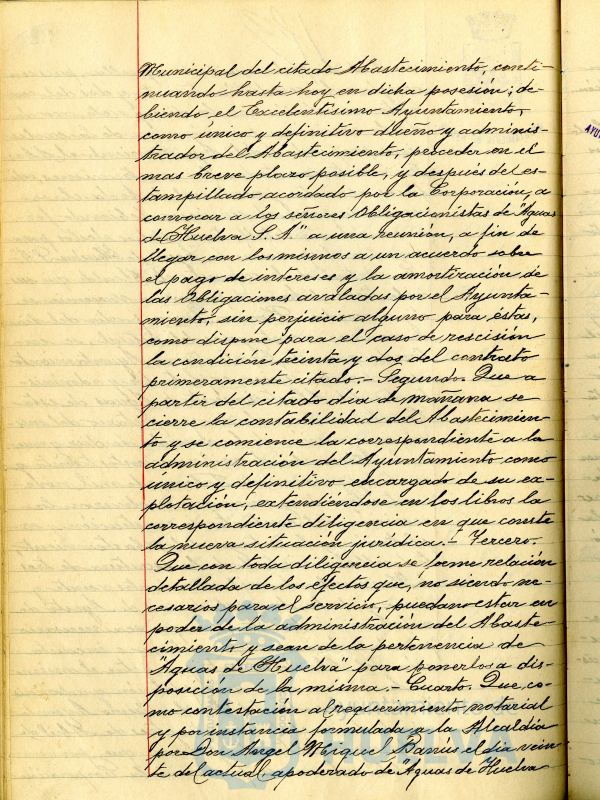 Municipal del citado Abastecimiento, conti-
nuando hasta hoy en dicha posesión; de-
biendo, el Excelentísimo Ayuntamiento,
como único y definitivo dueño y adminis-
trador del Abastecimiento, proceder en el
mas breve plazo posible, y después del es-
tampillado acordado por la Corporación, a
convocar a los señores Obligacionistas de "Aguas
de Huelva S. A." a una reunión, a fin de
llegar con los mismos a un acuerdo sobre
el pago de intereses y la amortización de
las Obligaciones avaladas por el Ayunta-
miento, sin perjuicio alguno para éstas,
como dispone para el caso de rescisión
la condición treinta y dos del contrato
primeramente citado.- Segundo. Que a
partir del citado día de mañana se
cierre la contabilidad del Abastecimien-
to y se comience la correspondiente a la
administración del Ayuntamiento como
único y definitivo encargado de su ex-
plotación, extendiéndose en los libros la
correspondiente diligencia en que conste
la nueva situación jurídica.- Tercero.
Que con toda diligencia se forme relación
detallada de los efectos que, no siendo ne-
cesarios para el servicio, puedan estar en
poder de la administración del Abaste-
cimiento y sean de la pertenencia de
"Aguas de Huelva" para ponerlos a dis-
posición de la misma.- Cuarto. Que, co-
mo contestación al requerimiento notarial
y por instancia formulada a la Alcaldía
por Don Angel Miguel Banús el día vein-
te del actual, apoderado de "Aguas de Huelva
HUELVA